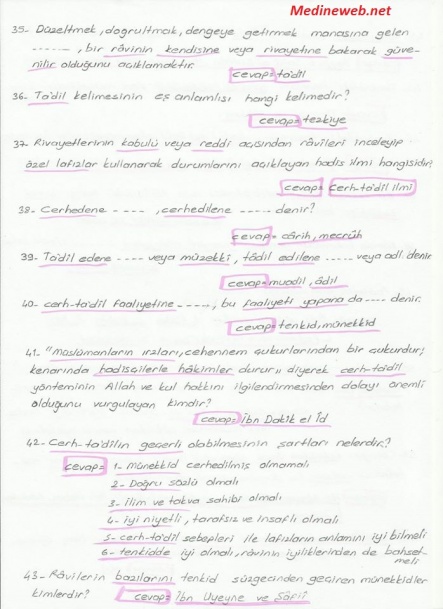 Medineweb.net
35- Düzeltmek, doğrultmak, dengeye getirmek manasına gelen
-----, bir râvinin kendisine veya rivayetine bakarak güve-
nilir olduğunu açıklamaktır.
cevap= ta'dîl
36- Ta'dîl kelimesinin eş anlamlısı hangi kelimedir?
cevap= tezkiye
37- Rivayetlerinin kabulü veya reddi açısından râvileri inceleyip
özel lafızlar kullanarak durumlarını açıklayan hadis ilmi hangisidir?
cevap= Cerh-ta'dîl ilmi
38- Cerhedene ----, cerhedilene ----- denir?
cevap= cârih, mecrûh
39- Ta'dîl edene ---- veya müzekkî, tâdil edilene ---- veya adl denir
cevap= muadil, âdil
40- cerh-ta'dîl faaliyetine -----, bu faaliyeti yapana da ---- denir.
cevap= tenkid, münekkid
41- "Müslümanların ırzları, cehennem çukurlarından bir çukurdur;
kenarında hadisçilerle hâkimler durur" diyerek cerh-ta'dîl
yönteminin Allah ve kul hakkını ilgilendirmesinden dolayı önemli
olduğunu vurgulayan kimdir?
cevap= İbn Dakîk el Îd
42- Cerh-ta'dîlin geçerli olabilmesinin şartları nelerdir?
cevap= 1- Münekkid cerhedilmiş olmamalı
2- Doğru sözlü olmalı
3- İlim ve takva sahibi olmalı
4- iyi niyetli, tarafsız ve insaflı olmalı
5- cerh-ta'dîl sebepleri ile lafızların anlamını iyi bilmeli
6- tenkidde iyi olmalı, râvinin iyiliklerinden de bahset-
meli
43- Râvilerin bazılarını tenkid süzgecinden geçiren münekkidler
kimlerdir? cevap= İbn Uyeyne ve Şâfiî